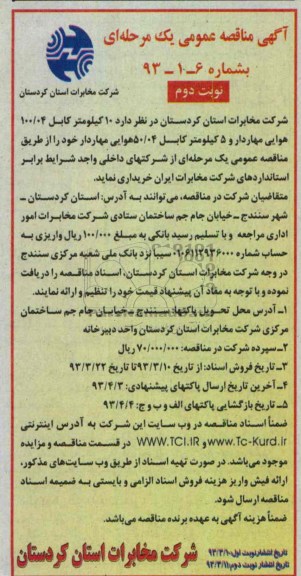 آگهی مناقصه عمومی یک مرحله‌ای
بشماره ۶-۱-۹۳
نوبت دوم
شرکت مخابرات استان کردستان
شرکت مخابرات استان کردستان در نظر دارد ۱۰ کیلومتر کابل ۱۰۰/۰۴
هوایی مهاردار و ۵ کیلومتر کابل ۵۰/۰۴ هوایی مهاردار خود را از طریق
مناقصه عمومی یک مرحله‌ای از شرکتهای داخلی واجد شرایط برابر
استانداردهای شرکت مخابرات ایران خریداری نماید.
متقاضیان شرکت در مناقصه، می‌توانند به آدرس: استان کردستان ـ
شهر سنندج ـ خیابان جام جم ساختمان ستادی شرکت مخابرات امور
اداری مراجعه و با تسلیم رسید بانکی به مبلغ ۱۰۰/۰۰۰ ریال واریزی به
حساب شماره سیبا نزد بانک ملی شعبه مرکزی سنندج
در وجه شرکت مخابرات استان کردستان، اسناد مناقصه را دریافت
نموده و با توجه به مفاد آن پیشنهاد قیمت خود را تنظیم و ارائه نمایند.
۱ـ آدرس محل تحویل پاکتها: سنندج ـ خیابان جام جم ساختمان
مرکزی شرکت مخابرات استان کردستان واحد دبیرخانه
۲ـ سپرده شرکت در مناقصه: ۷۰/۰۰۰/۰۰۰ ریال
۳ـ تاریخ فروش اسناد: از تاریخ ۹۳/۳/۱۰ تا تاریخ ۹۳/۳/۲۲
۴ـ آخرین تاریخ ارسال پاکتهای پیشنهادی: ۹۳/۴/۳
۵ـ تاریخ بازگشایی پاکتهای الف و ب و ج: ۹۳/۴/۴
ضمناً اسناد مناقصه در وب سایت این شرکت به آدرس اینترنتی
www.Tc-Kurd.ir و WWW.TCI.IR در قسمت مناقصه و مزایده
موجود می‌باشد. در صورت تهیه اسناد از طریق وب سایت‌های مذکور،
ارائه فیش واریز هزینه فروش اسناد الزامی و بایستی به ضمیمه اسناد
مناقصه ارسال شود.
ضمناً هزینه آگهی به عهده برنده مناقصه می‌باشد.
تاریخ انتشار نوبت اول: ۹۳/۳/۱۰
تاریخ انتشار نوبت دوم: ۹۳/۳/۱۱
شرکت مخابرات استان کردستان